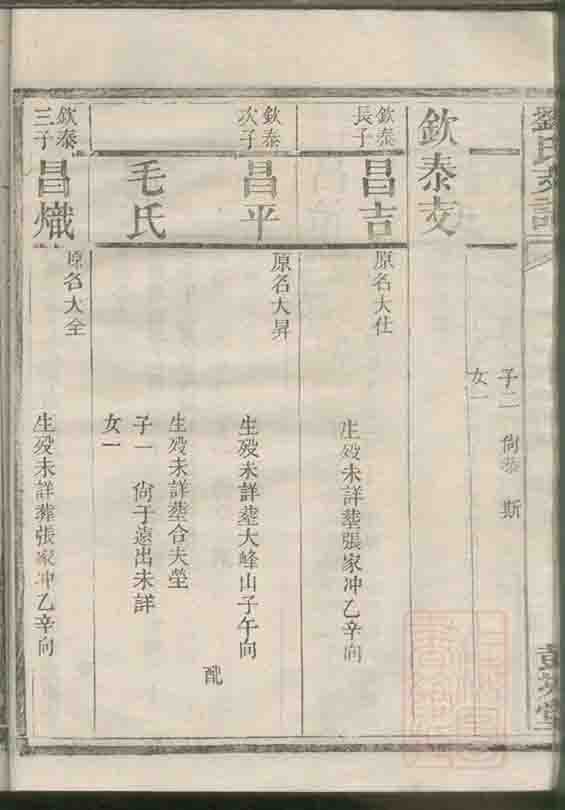 劉氏支譜
子二 尙泰 斯
女一
欽泰支
欽泰
長子
昌吉
原名大仕
生殁未詳塟張家冲乙辛向
欽泰
次子
昌平
原名大昇
生殁未詳塟大峰山子午向
配
毛氏
生殁未詳塟合夫塋
子一 尙于遠出未詳
女一
欽泰
三子
昌熾
原名大全
生殁未詳葬張家冲乙辛向